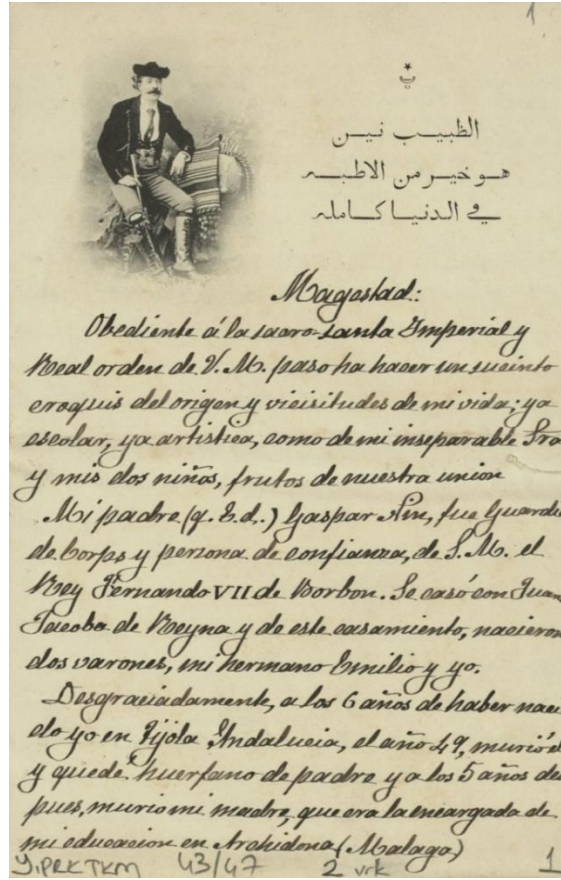 1
الطبيب نين
هو خير من الاطبه
في الدنيا كامله
Magestad:
Obediente á la sacro-santa Imperial y
Real orden de V. M. paso ha hacer un sucinto
croquis del origen y vicisitudes de mi vida; ya
escolar, ya artistica, como de mi inseparable Sra
y mis dos niños, frutos de nuestra union
Mi padre (q. E. d.) Gaspar Nin, fue Guardia
de Corps y persona de confianza, de S. M. el
Rey Fernando VII de Borbon. Se casó con Juan
Jacoba de Reyna y de este casamiento, nacieron
dos varones, mi hermano Emilio y yo.
Desgraciadamente, a los 6 años de haber naci
do yo en Tijola Andalucia, el año 49, murió él
y quedé huerfano de padre y a los 5 años des
pues, murio mi madre, que era la encargada de
mi educacion en Archidona (Malaga)
Y.PRK.TKM 43/47 2 vrk 1